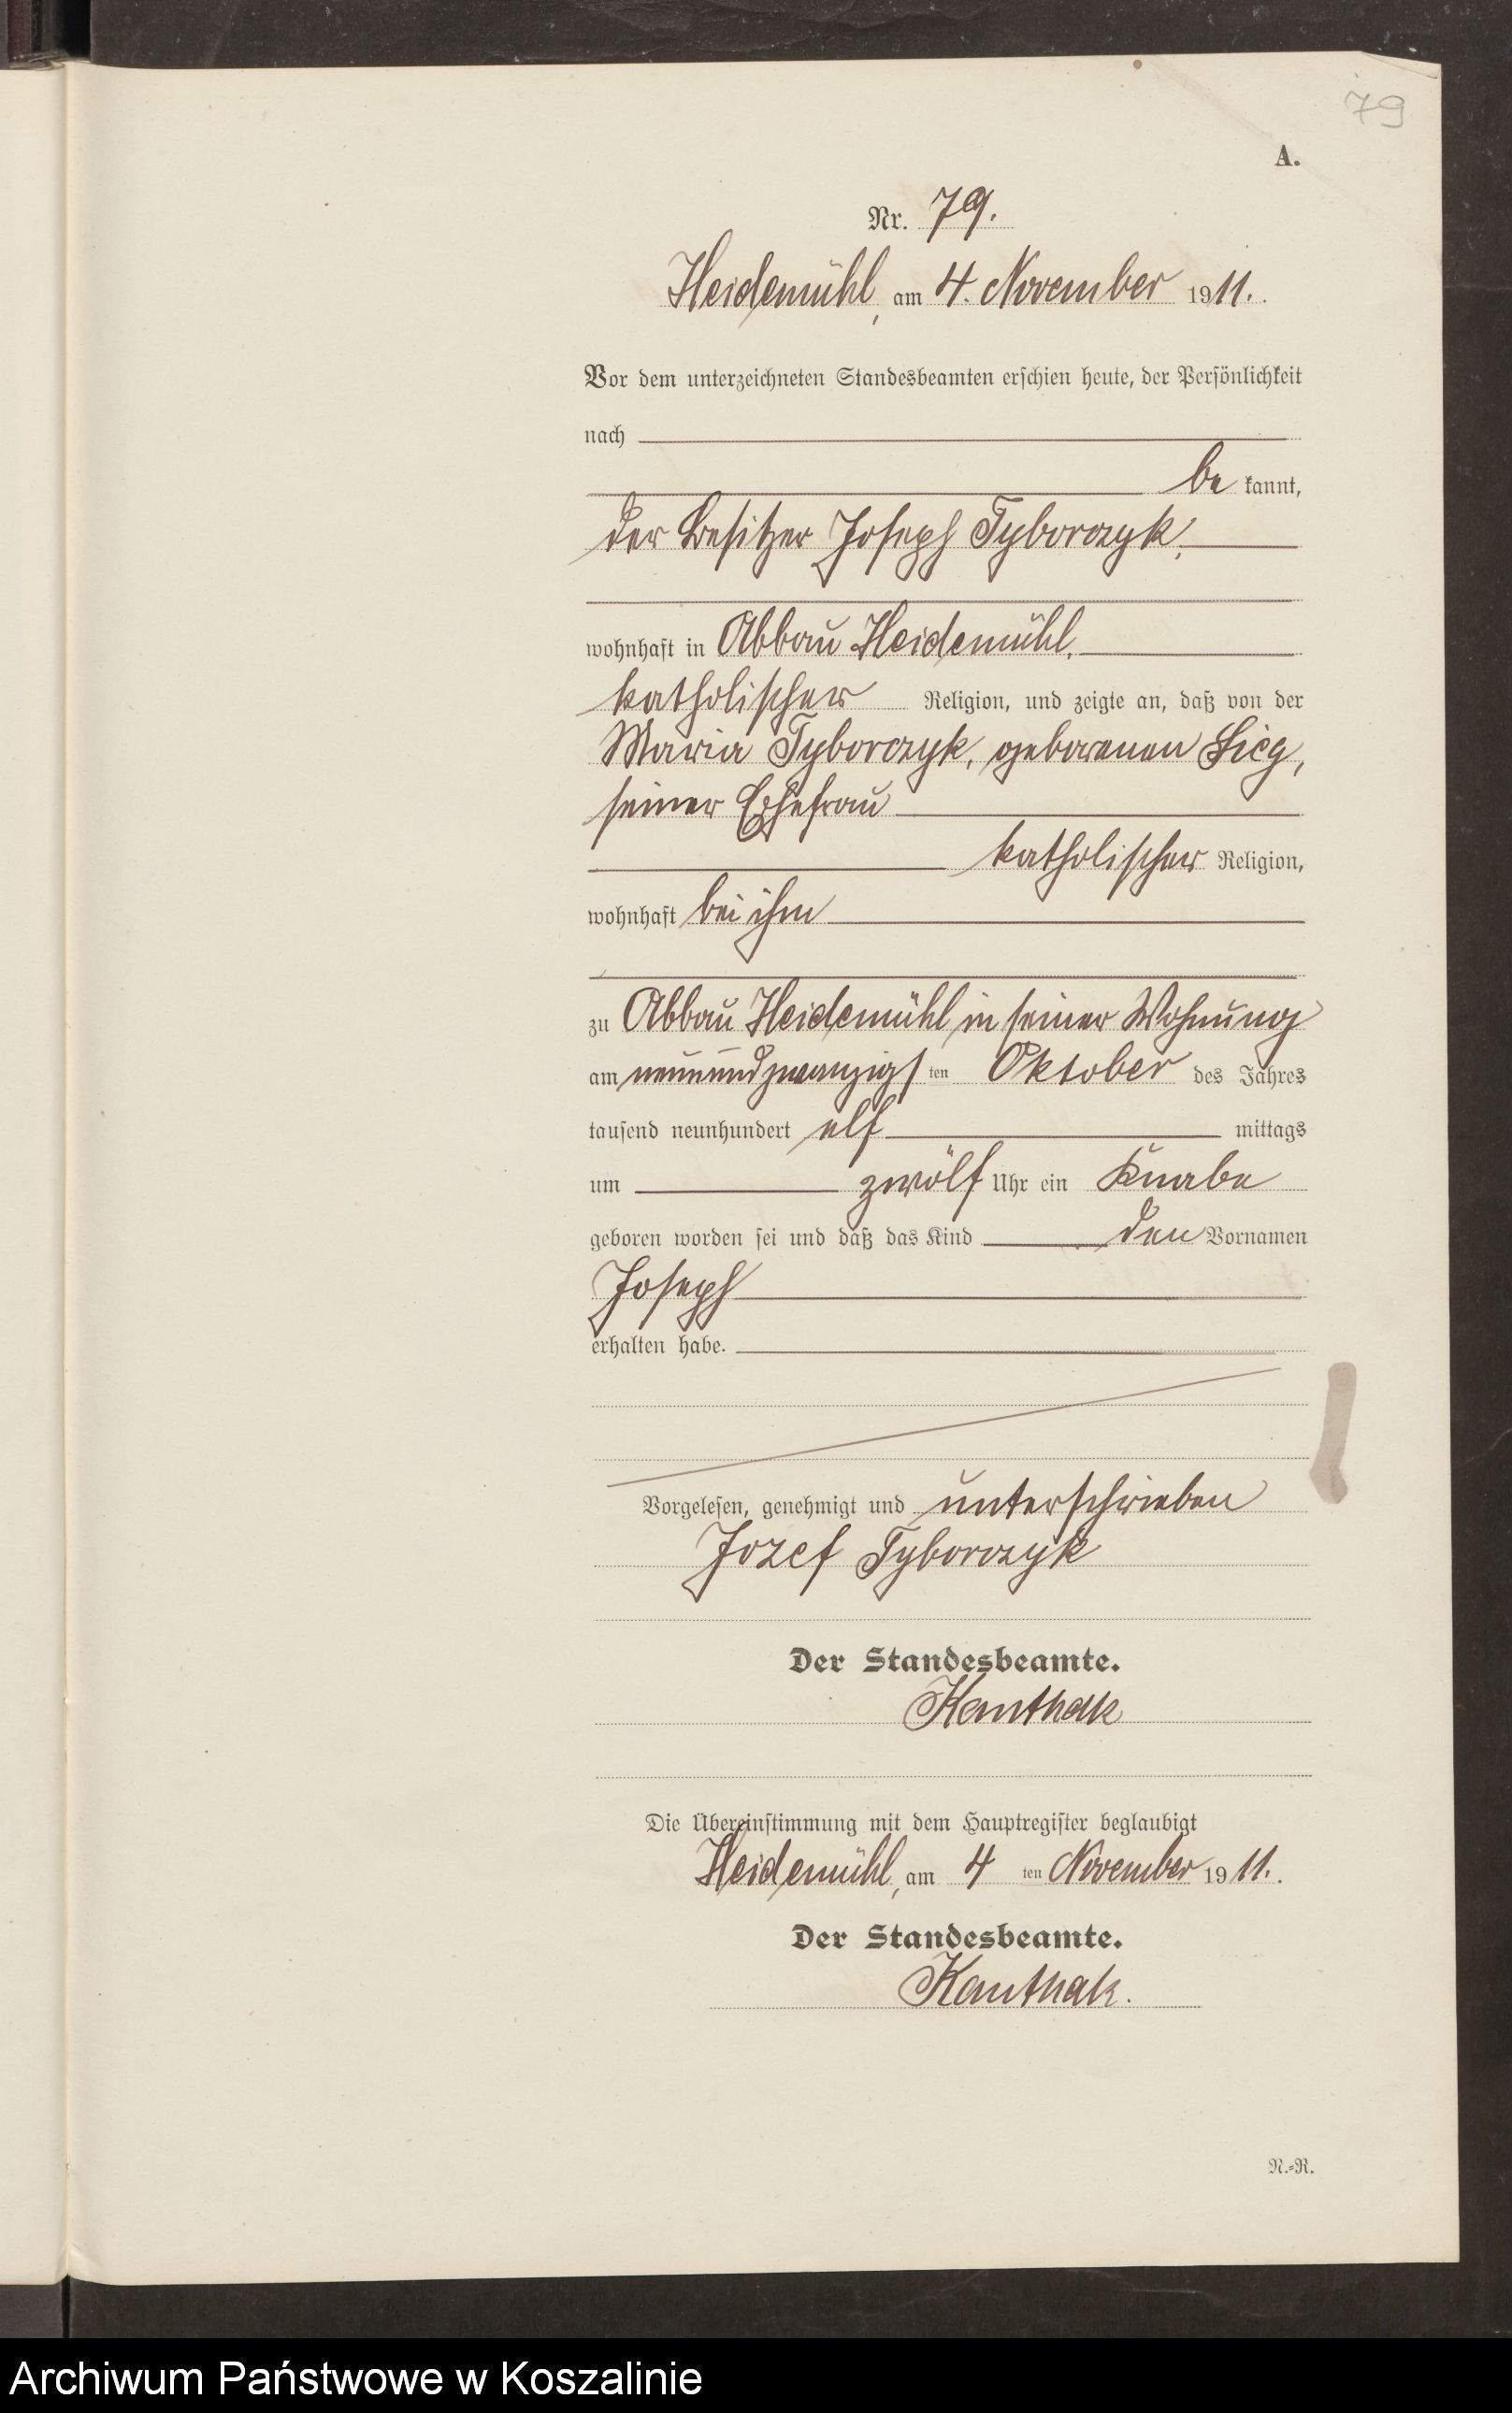 79
A.
Nr. 79.
Heidemühl, am 4. November 1911.
Vor dem unterzeichneten Standesbeamten erschien heute, der Persönlichkeit
nach
be kannt,
der Besitzer Joseph Tyborczyk,
wohnhaft in Abbau Heidemühl,
katholischer Religion, und zeigte an, daß von der
Maria Tyborczyk, geborenen Sieg,
seiner Ehefrau
katholischer Religion,
wohnhaft bei ihm
zu Abbau Heidemühl in seiner Wohnung
am neunundzwanzigsten Oktober des Jahres
tausend neunhundert elf mittags
um zwölf Uhr ein Knabe
geboren worden sei und daß das Kind den Vornamen
Joseph
erhalten habe.
Vorgelesen, genehmigt und unterschrieben
Jozef Tyborczyk
Der Standesbeamte.
Kanthak
Die Übereinstimmung mit dem Hauptregister beglaubigt
Heidemühl, am 4 ten November 1911.
Der Standesbeamte.
Kanthak.
N.=R.
Archiwum Państwowe w Koszalinie